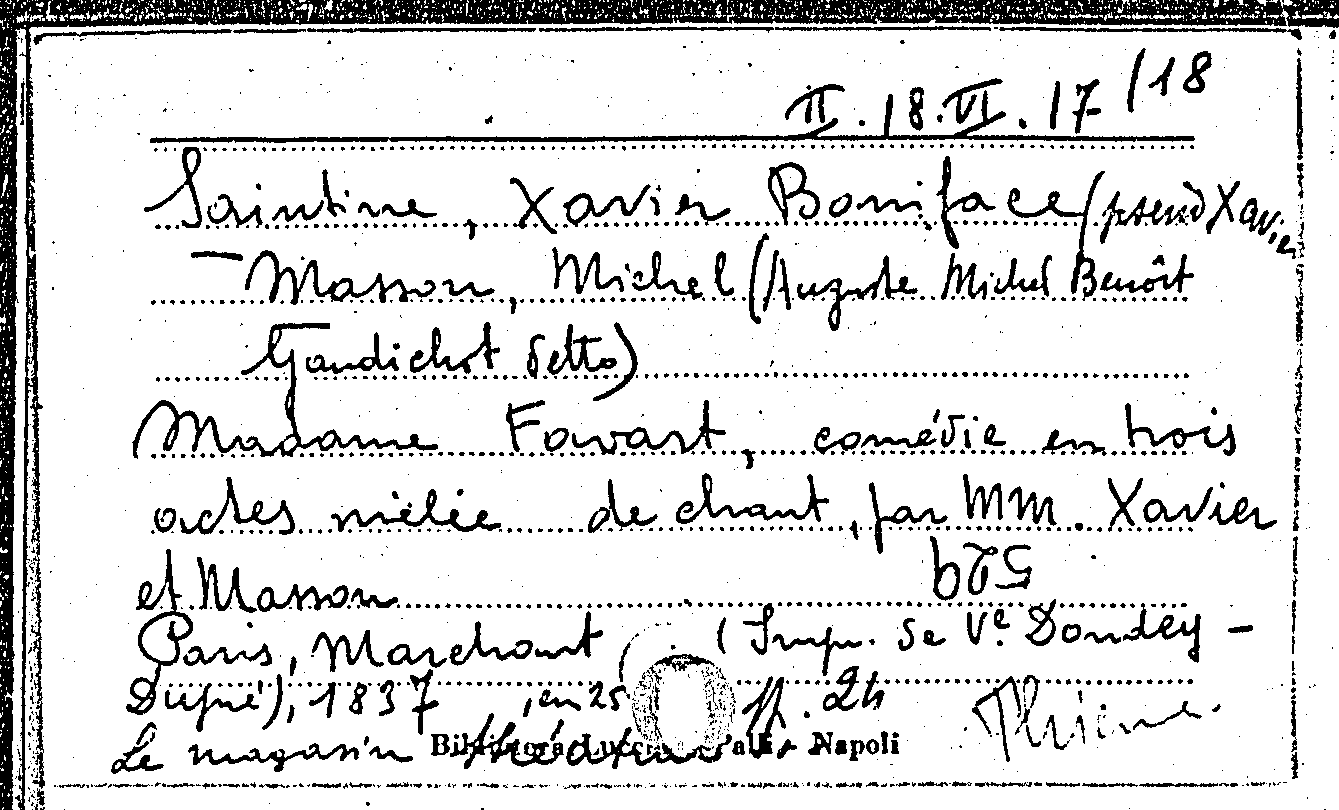 II.18.VI.17/18
Saintine, Xavier Boniface (pseud Xavier
— Masson, Michel (Auguste Michel Benôit
Gaudichot detto)
Madame Favart, comédie en trois
actes mêlée de chant, par MM. Xavier
et Masson
529
Paris, Marchant (Imp. de Ve Dondey-
Dupré), 1837, in 25 pp. 24
Le magasin théâtral
Biblioteca Lucchesi Palli - Napoli